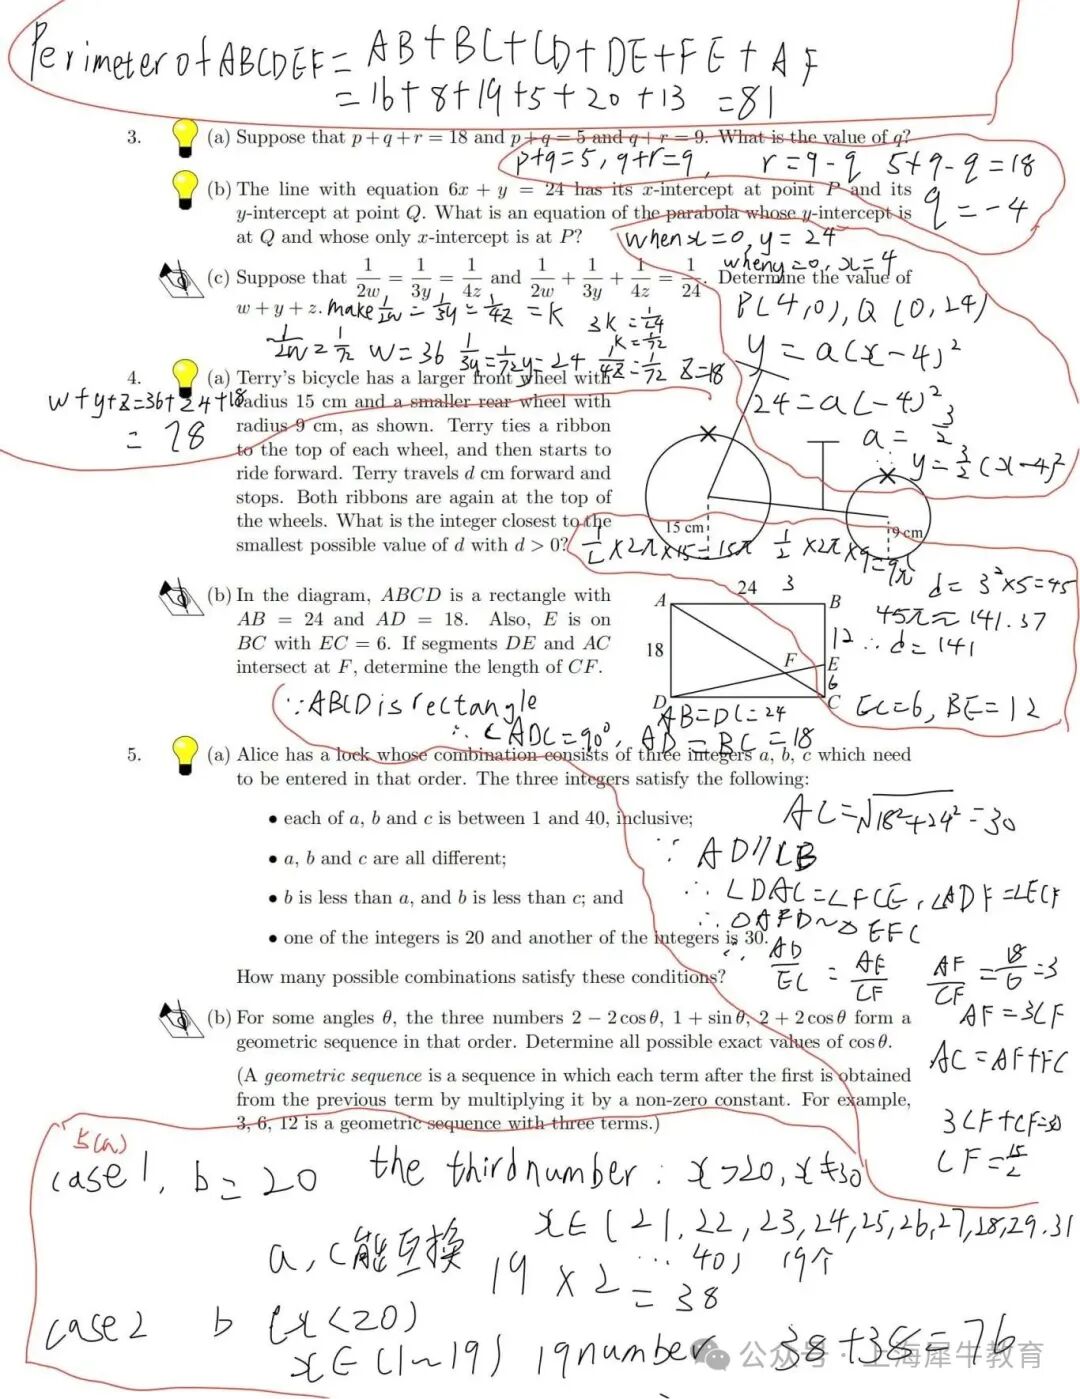 Perimeter of ABCDEF = AB+BC+CD+DE+FE+AF
= 16+8+19+5+20+13 = 81
3. (a) Suppose that p + q + r = 18 and p + q = 5 and q + r = 9. What is the value of q?
p+q=5, q+r=9, r=9-q 5+9-q=18
q=-4
(b) The line with equation 6x + y = 24 has its x-intercept at point P and its
y-intercept at point Q. What is an equation of the parabola whose y-intercept is
at Q and whose only x-intercept is at P?
when x=0, y=24
when y=0, x=4
P(4,0), Q(0,24)
y=a(x-4)²
24=a(-4)²
a=3/2
∴ y=3/2(x-4)²
(c) Suppose that 1/2w = 1/3y = 1/4z and 1/2w + 1/3y + 1/4z = 1/24. Determine the value of
w + y + z.
make 1/2w = 1/3y = 1/4z = k
3k=1/24
k=1/72
1/2w=1/72 w=36 1/3y=1/72 y=24 1/4z=1/72 z=18
w+y+z=36+24+18
= 78
4. (a) Terry's bicycle has a larger front wheel with
radius 15 cm and a smaller rear wheel with
radius 9 cm, as shown. Terry ties a ribbon
to the top of each wheel, and then starts to
ride forward. Terry travels d cm forward and
stops. Both ribbons are again at the top of
the wheels. What is the integer closest to the
smallest possible value of d with d > 0?
15 cm
9 cm
1/2×2π×15=15π 1/2×2π×9=9π
3
d=3²×5=45
45π≈141.37
∴ d=141
(b) In the diagram, ABCD is a rectangle with
AB = 24 and AD = 18. Also, E is on
BC with EC = 6. If segments DE and AC
intersect at F, determine the length of CF.
24
A
B
18
12
F
E
6
D
C
∵ABCD is rectangle
∴∠ADC=90°, AD=BC=18
AB=DC=24
EC=6, BE=12
AC=√18²+24²=30
∵ AD//CB
∴ ∠DAC=∠FCE, ∠ADF=∠ECF
∴ △AFD∽△EFC
∵ AD/EC = AF/CF AF/CF=18/6=3
AF=3CF
AC=AF+FC
3CF+CF=30
CF=15/2
5. (a) Alice has a lock whose combination consists of three integers a, b, c which need
to be entered in that order. The three integers satisfy the following:
• each of a, b and c is between 1 and 40, inclusive;
• a, b and c are all different;
• b is less than a, and b is less than c; and
• one of the integers is 20 and another of the integers is 30.
How many possible combinations satisfy these conditions?
(b) For some angles θ, the three numbers 2 − 2 cos θ, 1 + sin θ, 2 + 2 cos θ form a
geometric sequence in that order. Determine all possible exact values of cos θ.
(A geometric sequence is a sequence in which each term after the first is obtained
from the previous term by multiplying it by a non-zero constant. For example,
3, 6, 12 is a geometric sequence with three terms.)
5(a)
case1, b=20 the third number: x>20, x≠30
x∈(21,22,23,24,25,26,27,28,29,31
…40) 19个
a,c能互换 19×2
=38
case2 b (x<20)
x∈(1~19) 19number 38+38=76
公众号 · 上海犀牛教育